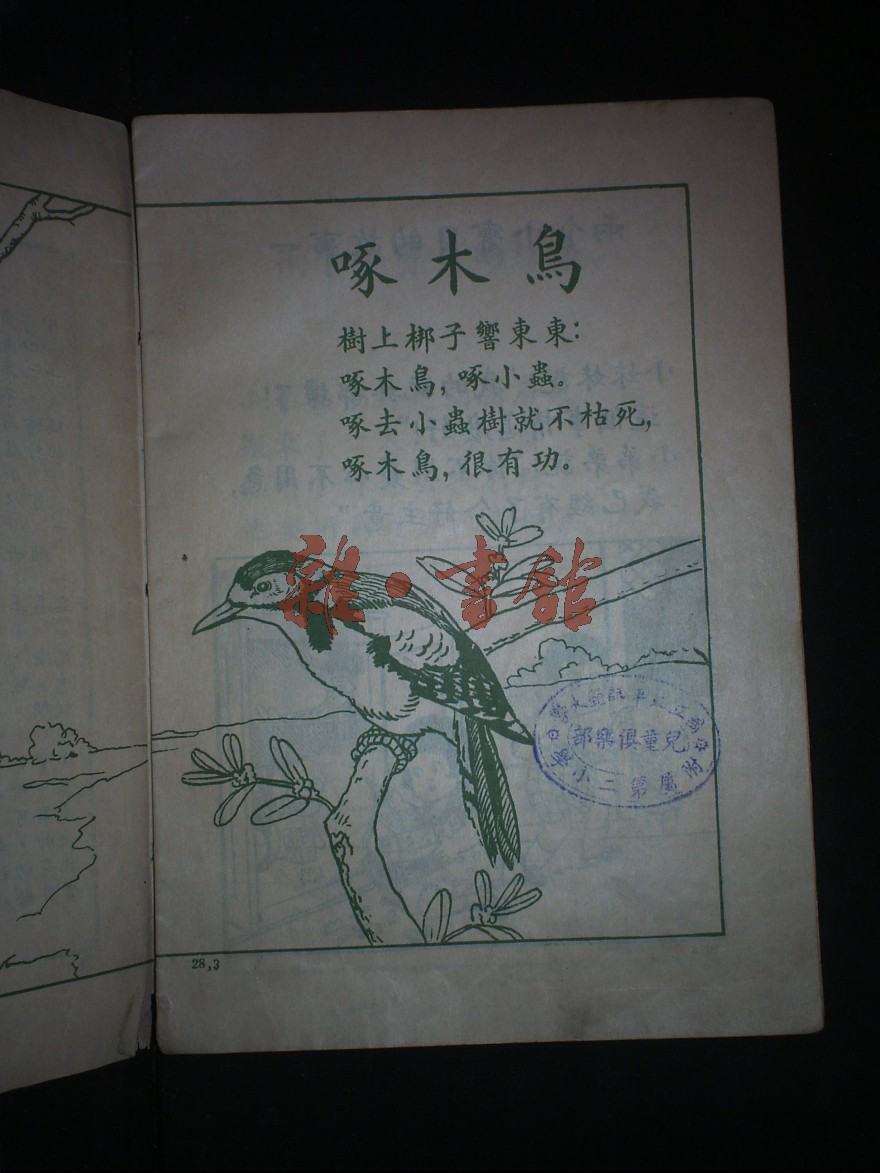 啄木鳥
樹上梆子響東東：
啄木鳥，啄小蟲。
啄去小蟲樹就不枯死，
啄木鳥，很有功。
雜·書館
國立北平師範大學
兒童俱樂部
附屬第二小學
28,3